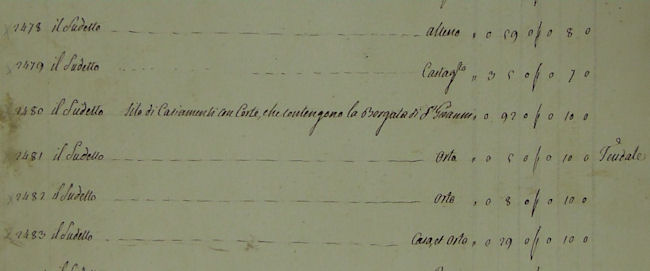 2478 il Sudetto alteno " 0 29 0/0 8 0
2479 il Sudetto Castag.to " 3 5 0/0 7 0
2480 il Sudetto Sito di Casiamenti con Corte, che contengono la Borgata di S. Gioanni " 0 92 0/0 10 0
2481 il Sudetto Orto " 0 5 0/0 10 0 Feudale
2482 il Sudetto Orto " 0 8 0/0 10 0
2483 il Sudetto Casa, et Orto " 0 29 0/0 10 0